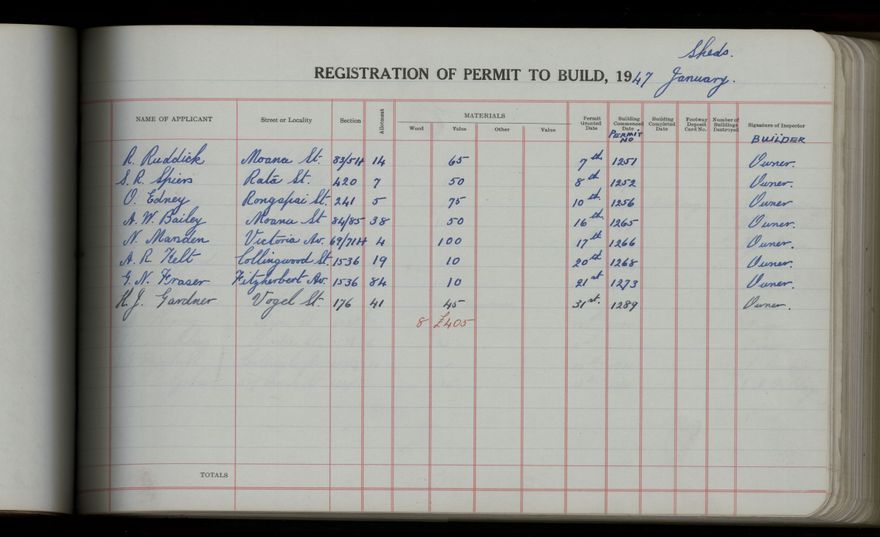 Sheds.
REGISTRATION OF PERMIT TO BUILD, 1947 January.
NAME OF APPLICANT Street or Locality Section Allotment MATERIALS Wood Value Other Value Permit Granted Date Building Commenced Date PERMIT NO Building Completed Date Footway Deposit Card No. Number of Buildings Destroyed Signature of Inspector BUILDER
R. Ruddick Moana St. 83/514 14 65 7th 1251 Owner.
S. R. Spiers Rata St. 420 7 50 8th 1252 Owner.
O. Edney Rongopai St. 241 5 75 10th 1256 Owner
A. W. Bailey Moana St 84/85 38 50 16th 1265 Owner.
N. Marsden Victoria Av. 69/714 4 100 17th 1266 Owner.
A. R. Felt Collingwood St. 1536 19 10 20th 1268 Owner.
G. N. Fraser Fitzherbert Av. 1536 84 10 21st 1273 Owner.
H. J. Gardner Vogel St. 176 41 45 31st. 1289 Owner.
8 £405
TOTALS